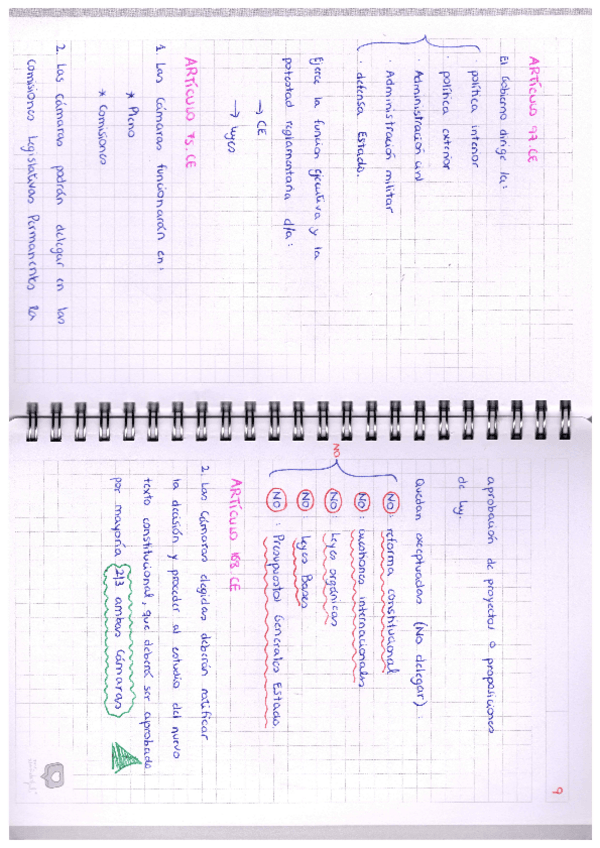 ARTÍCULO 97. CE
El Gobierno dirige la:
· política interior
· política exterior
· Administración civil
· Administración militar
· defensa Estado.
Ejerce la función ejecutiva y la
potestad reglamentaria d/a:
→ CE
→ leyes
ARTÍCULO 75. CE
1. Las Cámaras funcionarán en:
* Pleno
* Comisiones
2. Las cámaras podrán delegar en las
comisiones Legislativas Permanentes la
9
aprobación de proyectos o proposiciones
de ley.
Quedan exceptuadas (No delegar).
NO
NO: reforma constitucional
NO: cuestiones internacionales
NO: leyes orgánicas
NO: leyes Bases
NO: Presupuestos Generales Estado
ARTÍCULO 168 CE
2. Las Cámaras elegidas deberán ratificar
la decisión y proceder al estudio del nuevo
texto constitucional, que deberá ser aprobado
por mayoría 2/3 ambas Cámaras